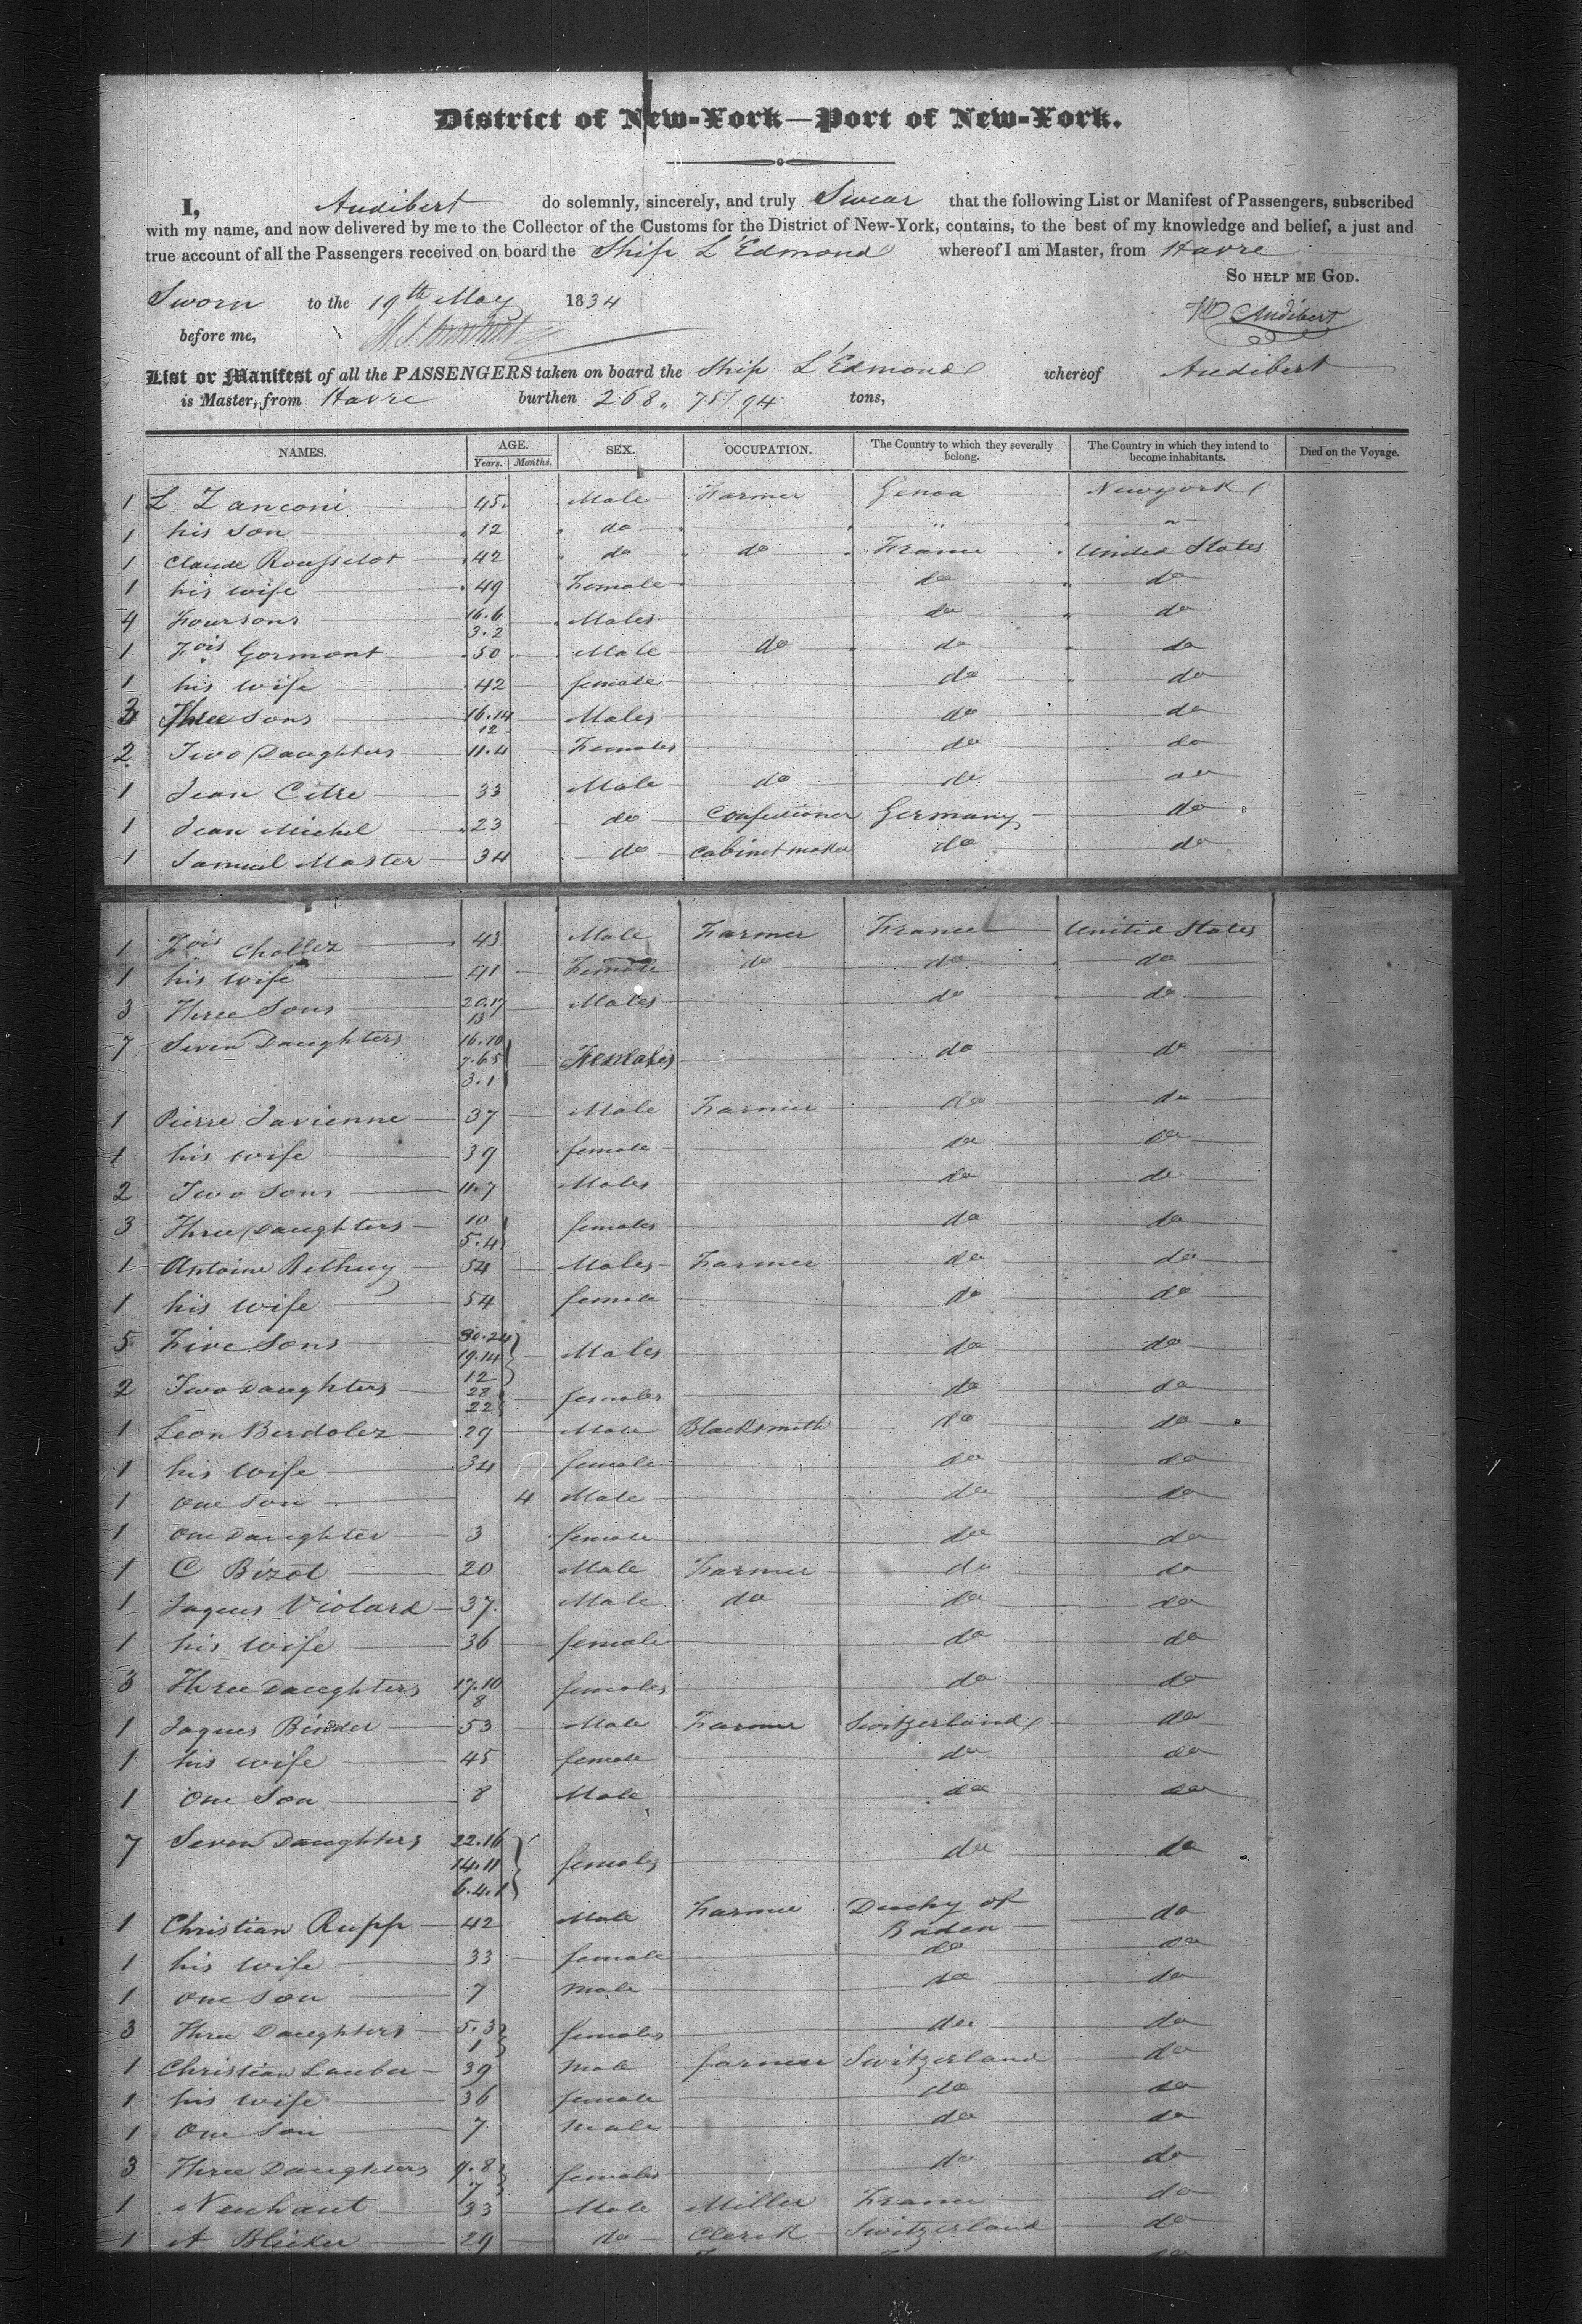 District of New-York—Port of New-York.
I, Audibert do solemnly, sincerely, and truly Swear that the following List or Manifest of Passengers, subscribed
with my name, and now delivered by me to the Collector of the Customs for the District of New-York, contains, to the best of my knowledge and belief, a just and
true account of all the Passengers received on board the Ship L'Edmond whereof I am Master, from Havre
So help me God.
Sworn to the 19th May 1834
before me,
Audibert
List or Manifest of all the PASSENGERS taken on board the Ship L'Edmond whereof Audibert
is Master, from Havre burthen 268 75/94 tons,
NAMES. AGE. SEX. OCCUPATION. The Country to which they severally belong. The Country in which they intend to become inhabitants. Died on the Voyage.
Years. Months.
1 L Zanconi 45 Male Farmer Genoa Newyork
1 his son 12 do " "
1 Claude Rousselot 42 do do France United States
1 his wife 49 Female do do
4 Four sons 16.6 3.2 Males do do
1 Fois Gormont 50 Male do do do
1 his wife 42 female do do
3 Three sons 16.14 12 Males do do
2 Two Daughters 11.4 Females do do
1 Jean Citre 33 Male do do do
1 Jean Michel 23 do Confectioner Germany do
1 Samuel Master 34 do Cabinet maker do do
1 Fois Chollez 43 Male Farmer France United States
1 his wife 41 Female do do do
3 Three Sons 20.17 13 Males do do
7 Seven Daughters 16.10 7.6.5 3.1 Females do do
1 Pierre Javienne 37 Male Farmer do do
1 his wife 39 female do do
2 Two Sons 11.7 Males do do
3 Three Daughters 10 5.4 females do do
1 Antoine Bethuy 54 Males Farmer do do
1 his wife 54 female do do
5 Five Sons 30.24 19.14 12 Males do do
2 Two Daughters 28 22 females do do
1 Leon Berdolez 29 Male Blacksmith do do
1 his wife 34 female do do
1 one son 4 Male do do
1 one Daughter 3 female do do
1 C Bizot 20 Male Farmer do do
1 Jaques Violard 37 Male do do do
1 his wife 36 female do do
3 Three Daughters 17.10 8 females do do
1 Jaques Binder 53 Male Farmer Switzerland do
1 his wife 45 female do do
1 One Son 8 Male do do
7 Seven Daughters 22.16 14.11 6.4.1 females do do
1 Christian Rupp 42 Male Farmer Duchy of Baden do
1 his wife 33 female do do
1 one son 7 Male do do
3 Three Daughters 5.3 1 females do do
1 Christian Lauber 39 Male farmer Switzerland do
1 his wife 36 female do do
1 One Son 7 Male do do
3 Three Daughters 9.8 7 females do do
1 Neuhaut 33 Male Miller France do
1 A Bleiker 29 do Clerk Switzerland do